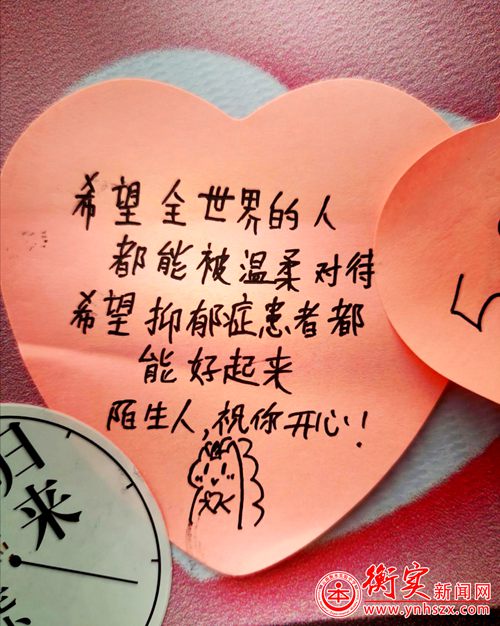 希望全世界的人
都能被温柔对待
希望抑郁症患者都
能好起来
陌生人,祝你开心!
归来
5
衡实新闻网
www.ynhszx.com